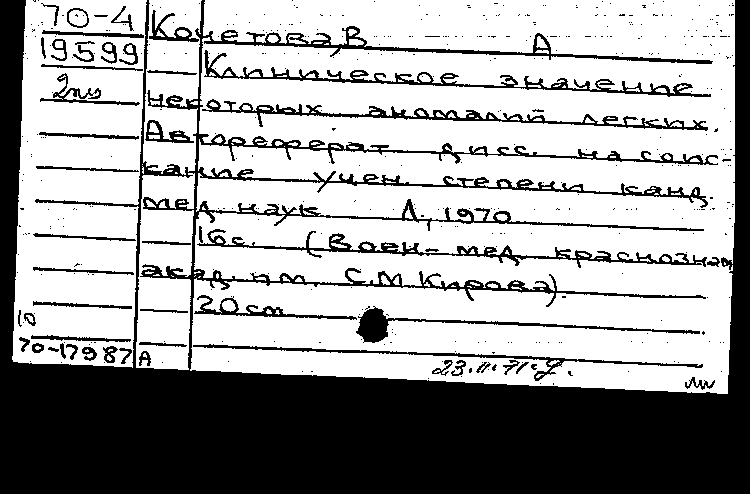 70-4 Кочетова, В А
19599 Клиническое значение
некоторых аномалий легких.
Автореферат дисс. на соис-
кание учен. степени канд.
мед наук Л., 1970
16с. (Воен.- мед. краснознам
акад. им. С.М Кирова).
20 cm
10
70-17987 A 23.II.71.